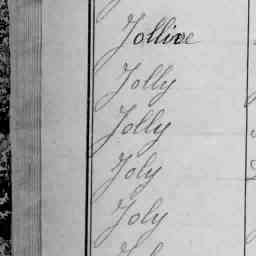 Jollive
Jolly
Jolly
Joly
Joly